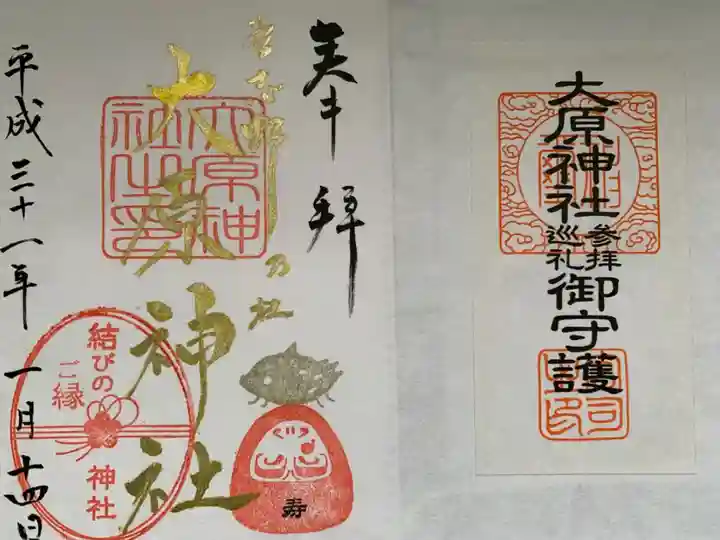 奉拝
大原神社
乃社
大原神社之印
平成三十一年一月十四日
結びの
ご縁
神社
寿
大原神社
参拝
巡礼
御守護